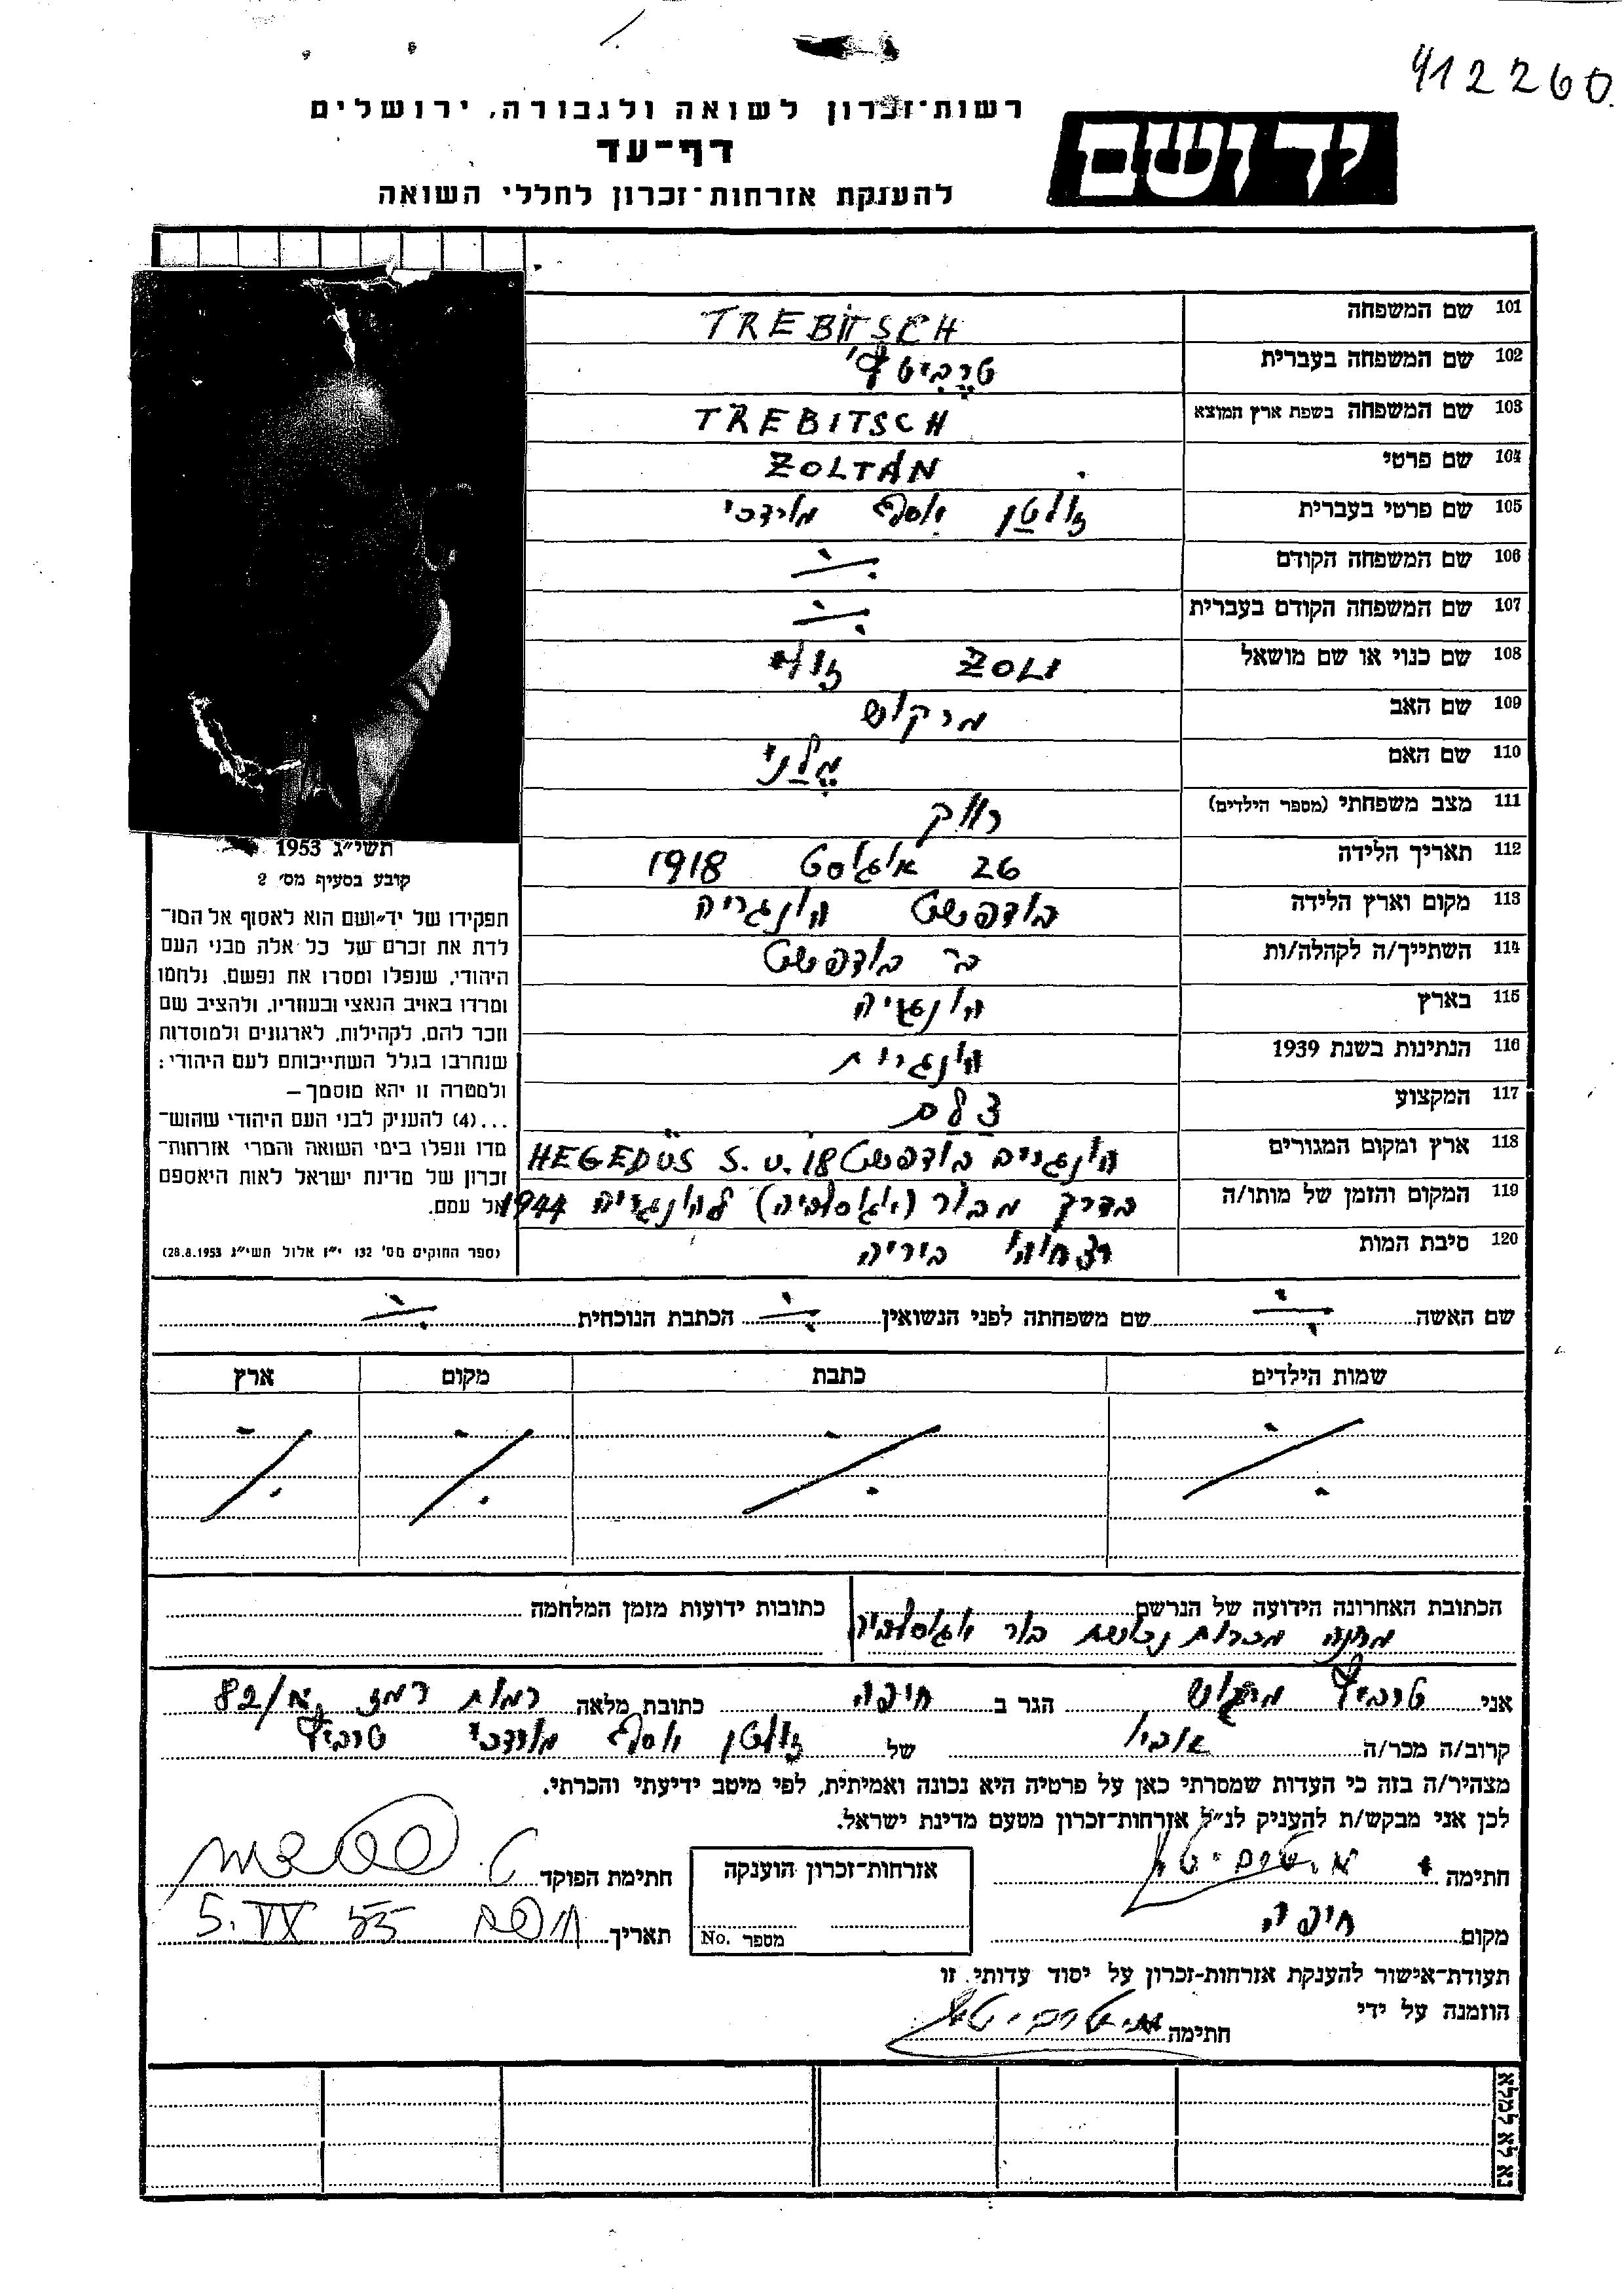 412260.
רשות־זכרון לשואה ולגבורה, ירושלים
יד ושם
דף־עד
להענקת אזרחות־זכרון לחללי השואה
101 שם המשפחה TREBITSCH
102 שם המשפחה בעברית טרביטש
103 שם המשפחה בשפת ארץ המוצא TREBITSCH
104 שם פרטי ZOLTÁN
105 שם פרטי בעברית זולטן יוסף מרדכי
106 שם המשפחה הקודם
107 שם המשפחה הקודם בעברית
108 שם כנוי או שם מושאל ZOLI זולי
109 שם האב מרקוש
110 שם האם מלני
111 מצב משפחתי (מספר הילדים) רווק
112 תאריך הלידה 26 אוגוסט 1918
113 מקום וארץ הלידה בודפשט הונגריה
114 השתייך/ה לקהלה/ות בודפשט
115 בארץ הונגריה
116 הנתינות בשנת 1939 הונגרית
117 המקצוע צלם
118 ארץ ומקום המגורים בודפשט HEGEDÜS S. U. 18
119 המקום והזמן של מותו/ה בדרך מבור (יוגוסלביה) להונגריה 1944
120 סיבת המות ביריה
תשי״ג 1953
קובע בסעיף מס׳ 2
תפקידו של יד־ושם הוא לאסוף אל המו־
לדת את זכרם של כל אלה מבני העם
היהודי, שנפלו ומסרו את נפשם, נלחמו
ומרדו באויב הנאצי ובעוזריו, ולהציב שם
וזכר להם, לקהילות, לארגונים ולמוסדות
שנחרבו בגלל השתייכותם לעם היהודי:
ולמטרה זו יהא מוסמך —
...(4) להעניק לבני העם היהודי שהוש־
מדו ונפלו בימי השואה והמרי אזרחות־
זכרון של מדינת ישראל לאות היאספם
אל עמם.
(ספר החוקים מס׳ 132 י״ז אלול תשי״ג 28.8.1953)
שם האשה שם משפחתה לפני הנשואין הכתבת הנוכחית
שמות הילדים כתבת מקום ארץ
הכתובת האחרונה הידועה של הנרשם כתובות ידועות מזמן המלחמה
מחנה מכרות נחושת בור יוגוסלביה
אני טרביטש מרקוש הגר ב חיפה כתובת מלאה רמות רמז 82/
קרוב/ה מכר/ה אביו של זולטן יוסף מרדכי טרביטש
מצהיר/ה בזה כי העדות שמסרתי כאן על פרטיה היא נכונה ואמיתית, לפי מיטב ידיעתי והכרתי.
לכן אני מבקש/ת להעניק לנ״ל אזרחות־זכרון מטעם מדינת ישראל.
חתימה אזרחות־זכרון הוענקה חתימת הפוקד
מקום חיפה מספר No. תאריך 5. IX 55
תעודת־אישור להענקת אזרחות־זכרון על יסוד עדותי זו
הוזמנה על ידי
חתימה
נא לא למלא